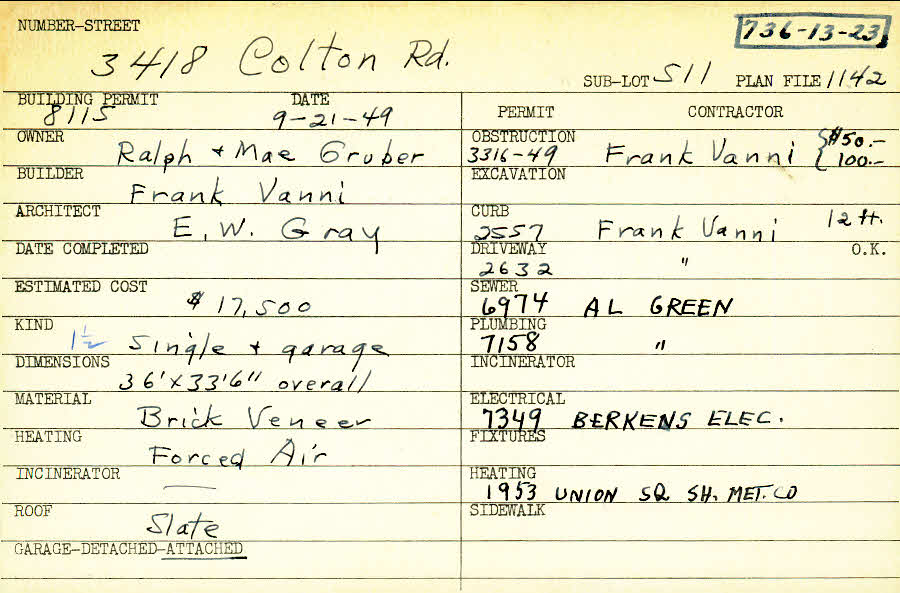 NUMBER-STREET
736-13-23
3418 Colton Rd.
SUB-LOT 511 PLAN FILE 1142
BUILDING PERMIT DATE
8115 9-21-49
OWNER
Ralph + Mae Gruber
BUILDER
Frank Vanni
ARCHITECT
E. W. Gray
DATE COMPLETED
ESTIMATED COST
$ 17,500
KIND
1 1/2 Single + garage
DIMENSIONS
36' x 33'6" overall
MATERIAL
Brick Veneer
HEATING
Forced Air
INCINERATOR
—
ROOF
Slate
GARAGE-DETACHED-ATTACHED
PERMIT CONTRACTOR
OBSTRUCTION
3316-49 Frank Vanni { $50.-
100.-
EXCAVATION
CURB
2557 Frank Vanni 12 ft.
DRIVEWAY O.K.
2632 "
SEWER
6974 AL GREEN
PLUMBING
7158 "
INCINERATOR
ELECTRICAL
7349 BERKENS ELEC.
FIXTURES
HEATING
1953 UNION SQ SH. MET. CO
SIDEWALK